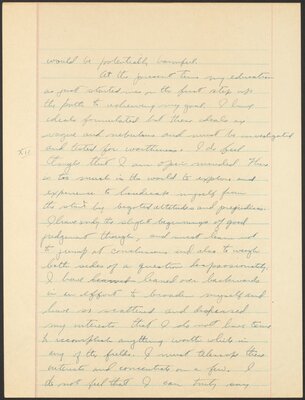 would be potentially harmful.
At the present time my education
has just started me on the first step up
the path to achieving my goal. I have
ideals formulated but these ideals are
vague and nebulous and must be investigated
XII
and tested for worthiness. I do feel
though that I am open minded. There
is too much in the world to explore and
experience to handicap myself from
the start by bigoted attitudes and prejudices.
I have only the slight beginnings of good
judgment though, and must learn not
to jump at conclusions and also to weigh
both sides of a question dispassionately.
I have leaned over backwards
in an effort to broaden myself and
have so scattered and dispersed
my interests that I do not have time
to accomplish anything worth while in
any of the fields. I must telescope these
interests and concentrate on a few. I
do not feel that I can truly say